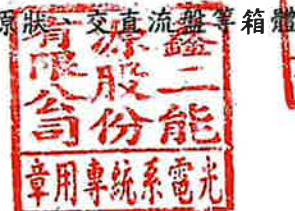 原狀、交直流盤等箱體
鑫二能
源股份
有限公司
光電系統專用章